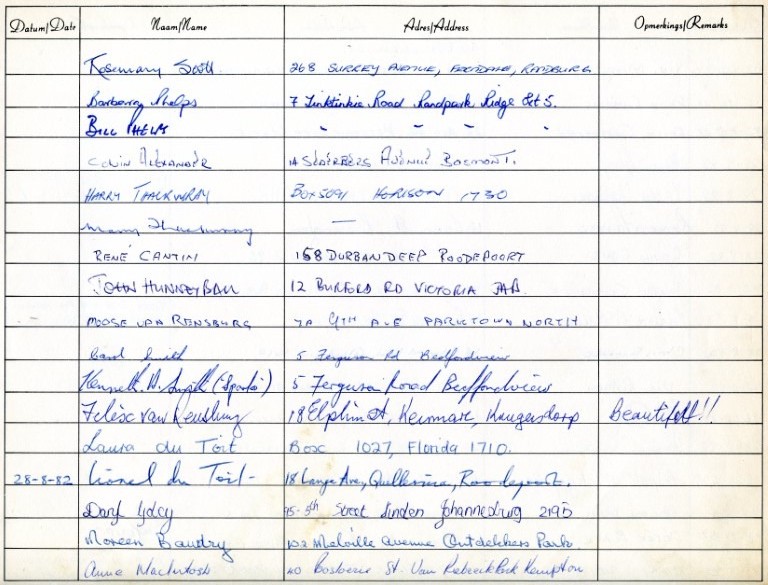 Datum/Date Naam/Name Adres/Address Opmerkings/Remarks
Rosemary Scott 268 SURREY AVENUE, RANDBURG
Barbara Phelps 7 Road Randpark Ridge Ext 5.
BILL PHELPS " " " "
COLIN ALEXANDER AVENUE BOSMONT.
HARRY THACKWRAY BOX 5091 HORISON 1730
Mary Thackwray —
RENÉ CANTIN 158 DURBAN DEEP ROODEPOORT
JOHN HUNNEYBALL 12 BURFORD RD VICTORIA JHB.
MOOSE VAN RENSBURG 7A 9TH AVE PARKTOWN NORTH
Carol Smith 5 Ferguson Rd Bedfordview
Kenneth Smith ('Sparks') 5 Ferguson Road Bedfordview
van 18 Elphin St, Kenmare, Krugersdorp Beautifull!!
Laura du Toit Box 1027, Florida 1710.
28-8-82 Lionel du Toit 18 Lange Ave, Quellerina, Roodepoort.
Daryl 95-5th Street Linden Johannesburg 2195
Moreen Baudry 102 Melville avenue Park.
Anne MacIntosh 40 St. Van Riebeeck Park Kempton